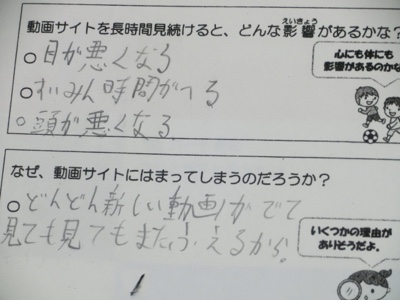 動画サイトを長時間見続けると、どんな影響があるかな?
えいきょう
○目が悪くなる
○すいみん時間がへる
○頭が悪くなる
心にも体にも
影響があるのかな
なぜ、動画サイトにはまってしまうのだろうか?
○どんどん新しい動画がでて
見ても見てもまたふえるから。
いくつかの理由が
ありそうだよ。